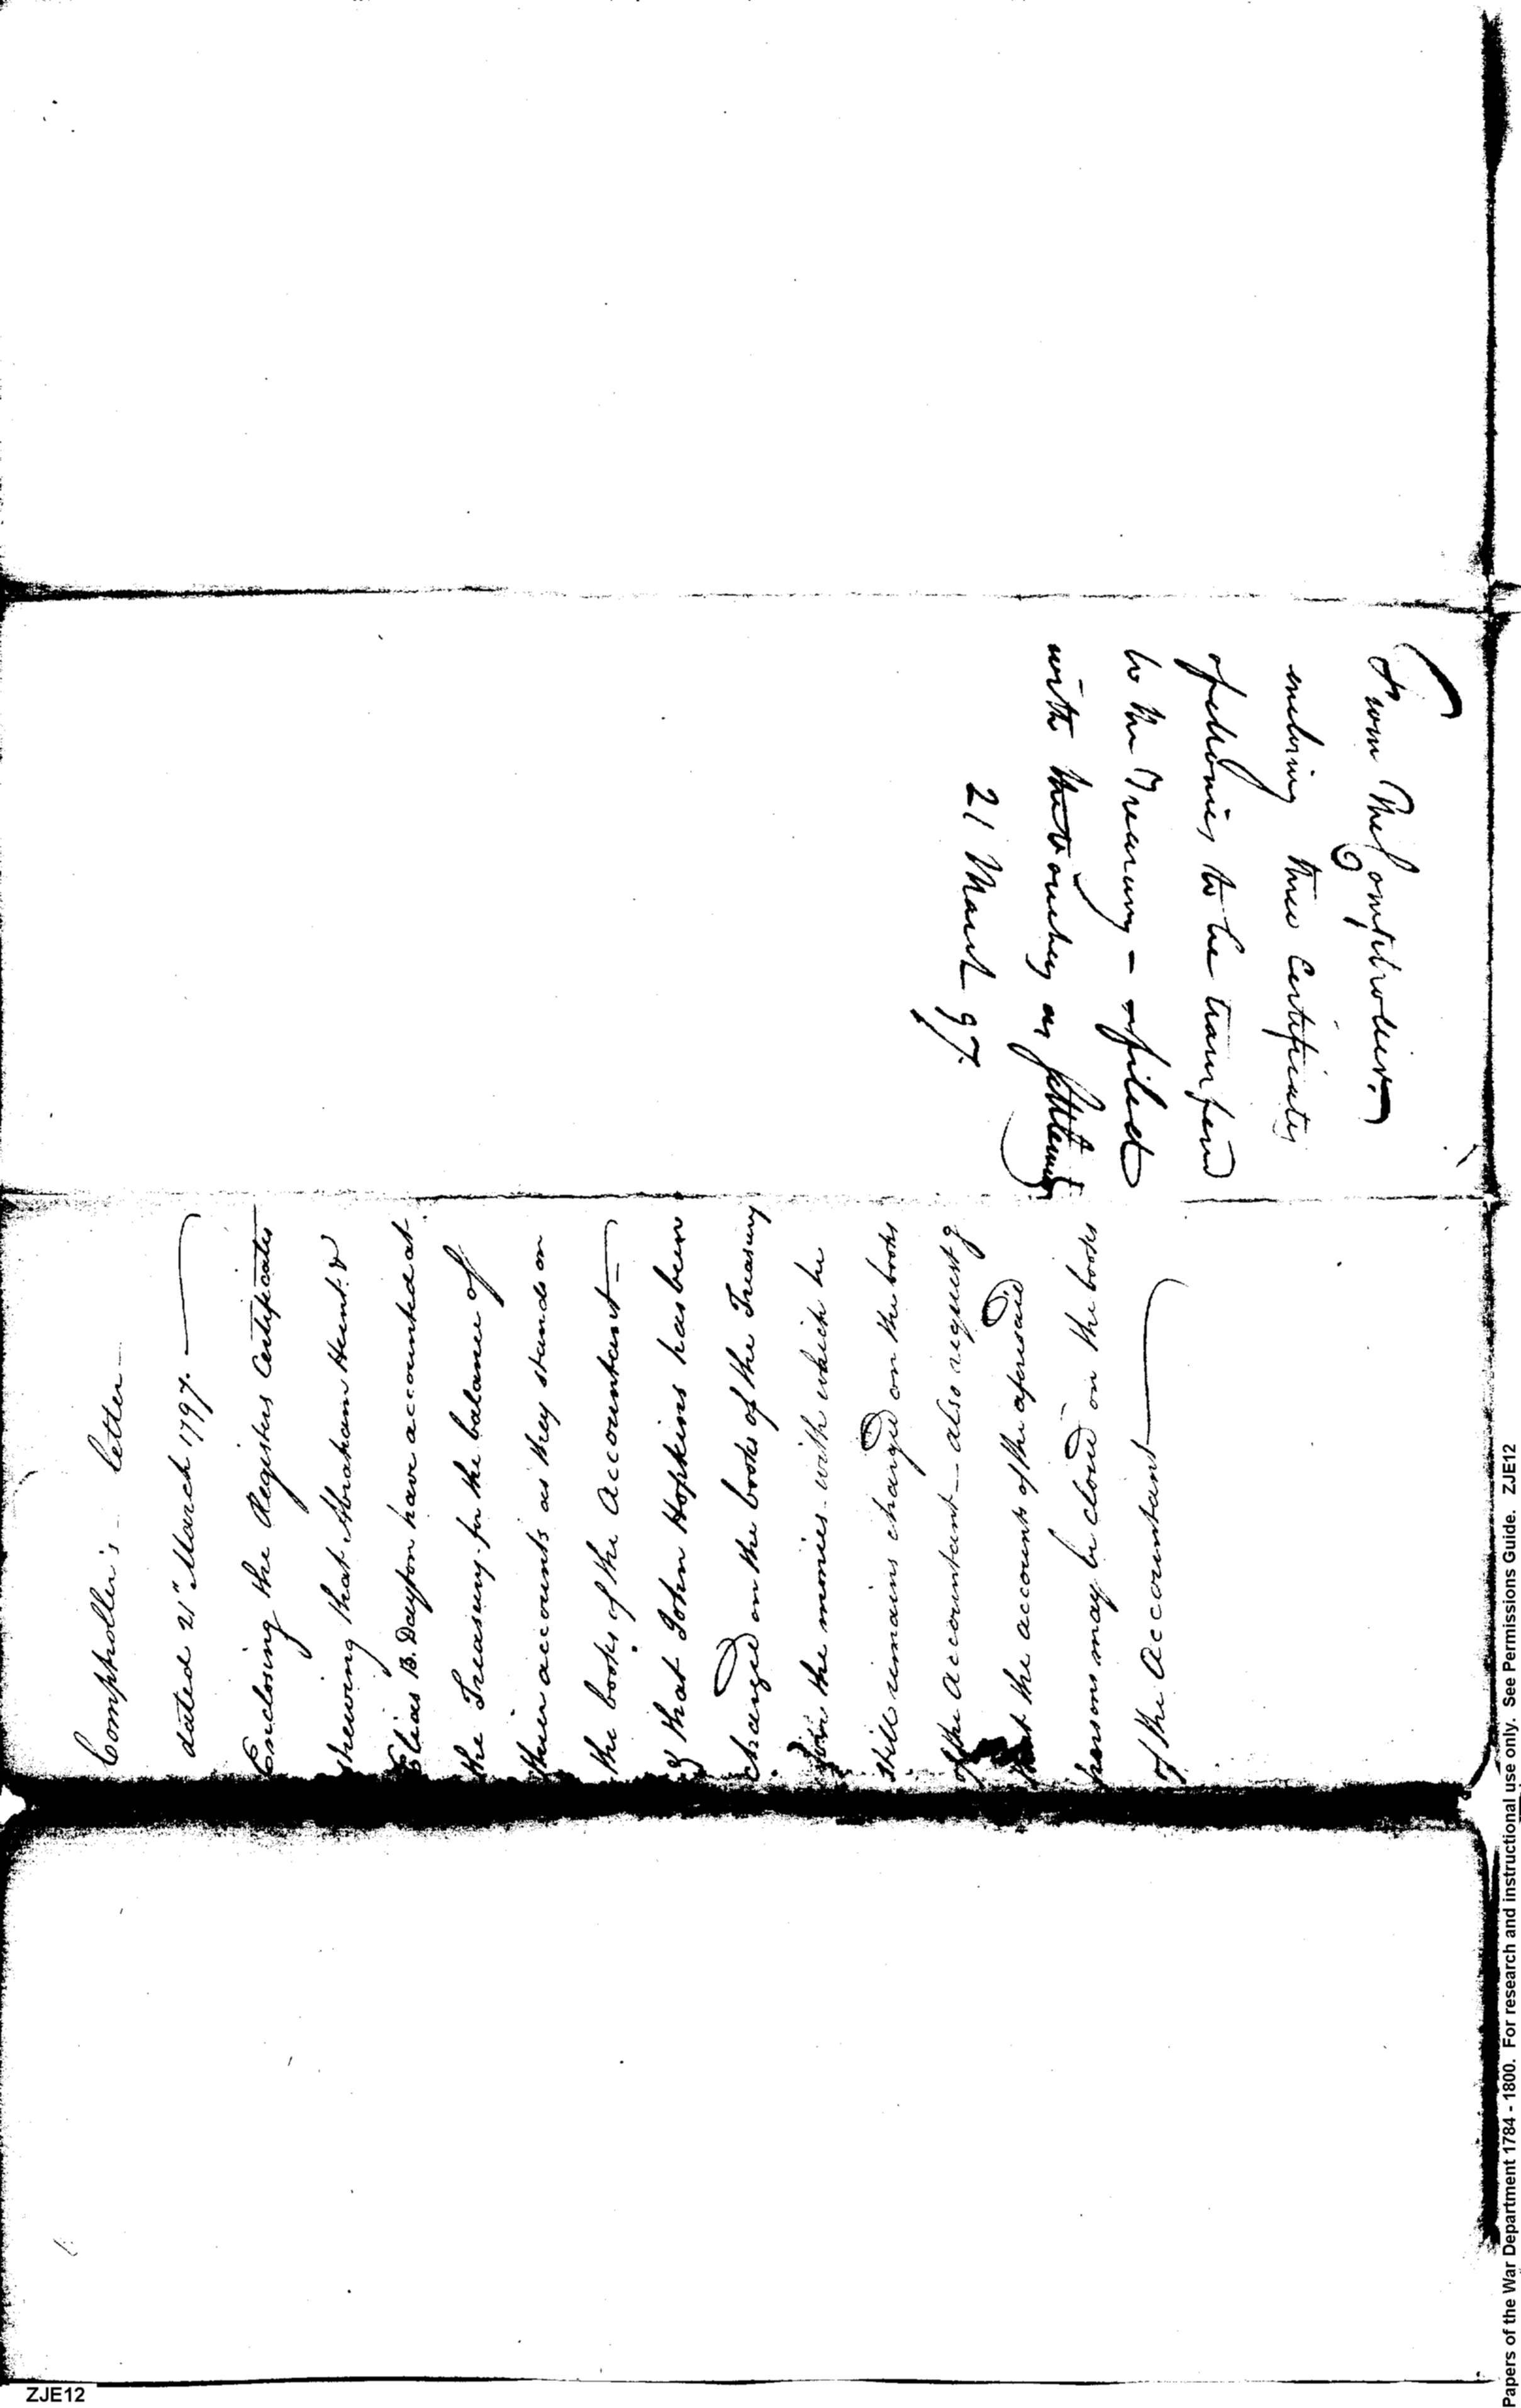 From the Comptroller
enclosing three Certificates
of monies to be transferred
to the Treasury - filed
with the vouchers as settlements
21 March 97.
Comptroller's letter
dated 21" March 1797.
Enclosing the Registers Certificates
shewing that Abraham Hunt &
Elias B. Dayton have accounted at
the Treasury for the balance of
their accounts as they stands on
the books of the Accountant
& that John Hopkins has been
charged on the books of the Treasury
the monies with which he
still remains charged on the books
of the Accountant - also requestg
that the accounts of the aforesaid
persons may be closed on the books
of the Accountant
Papers of the War Department 1784 - 1800. For research and instructional use only. See Permissions Guide. ZJE12
ZJE12